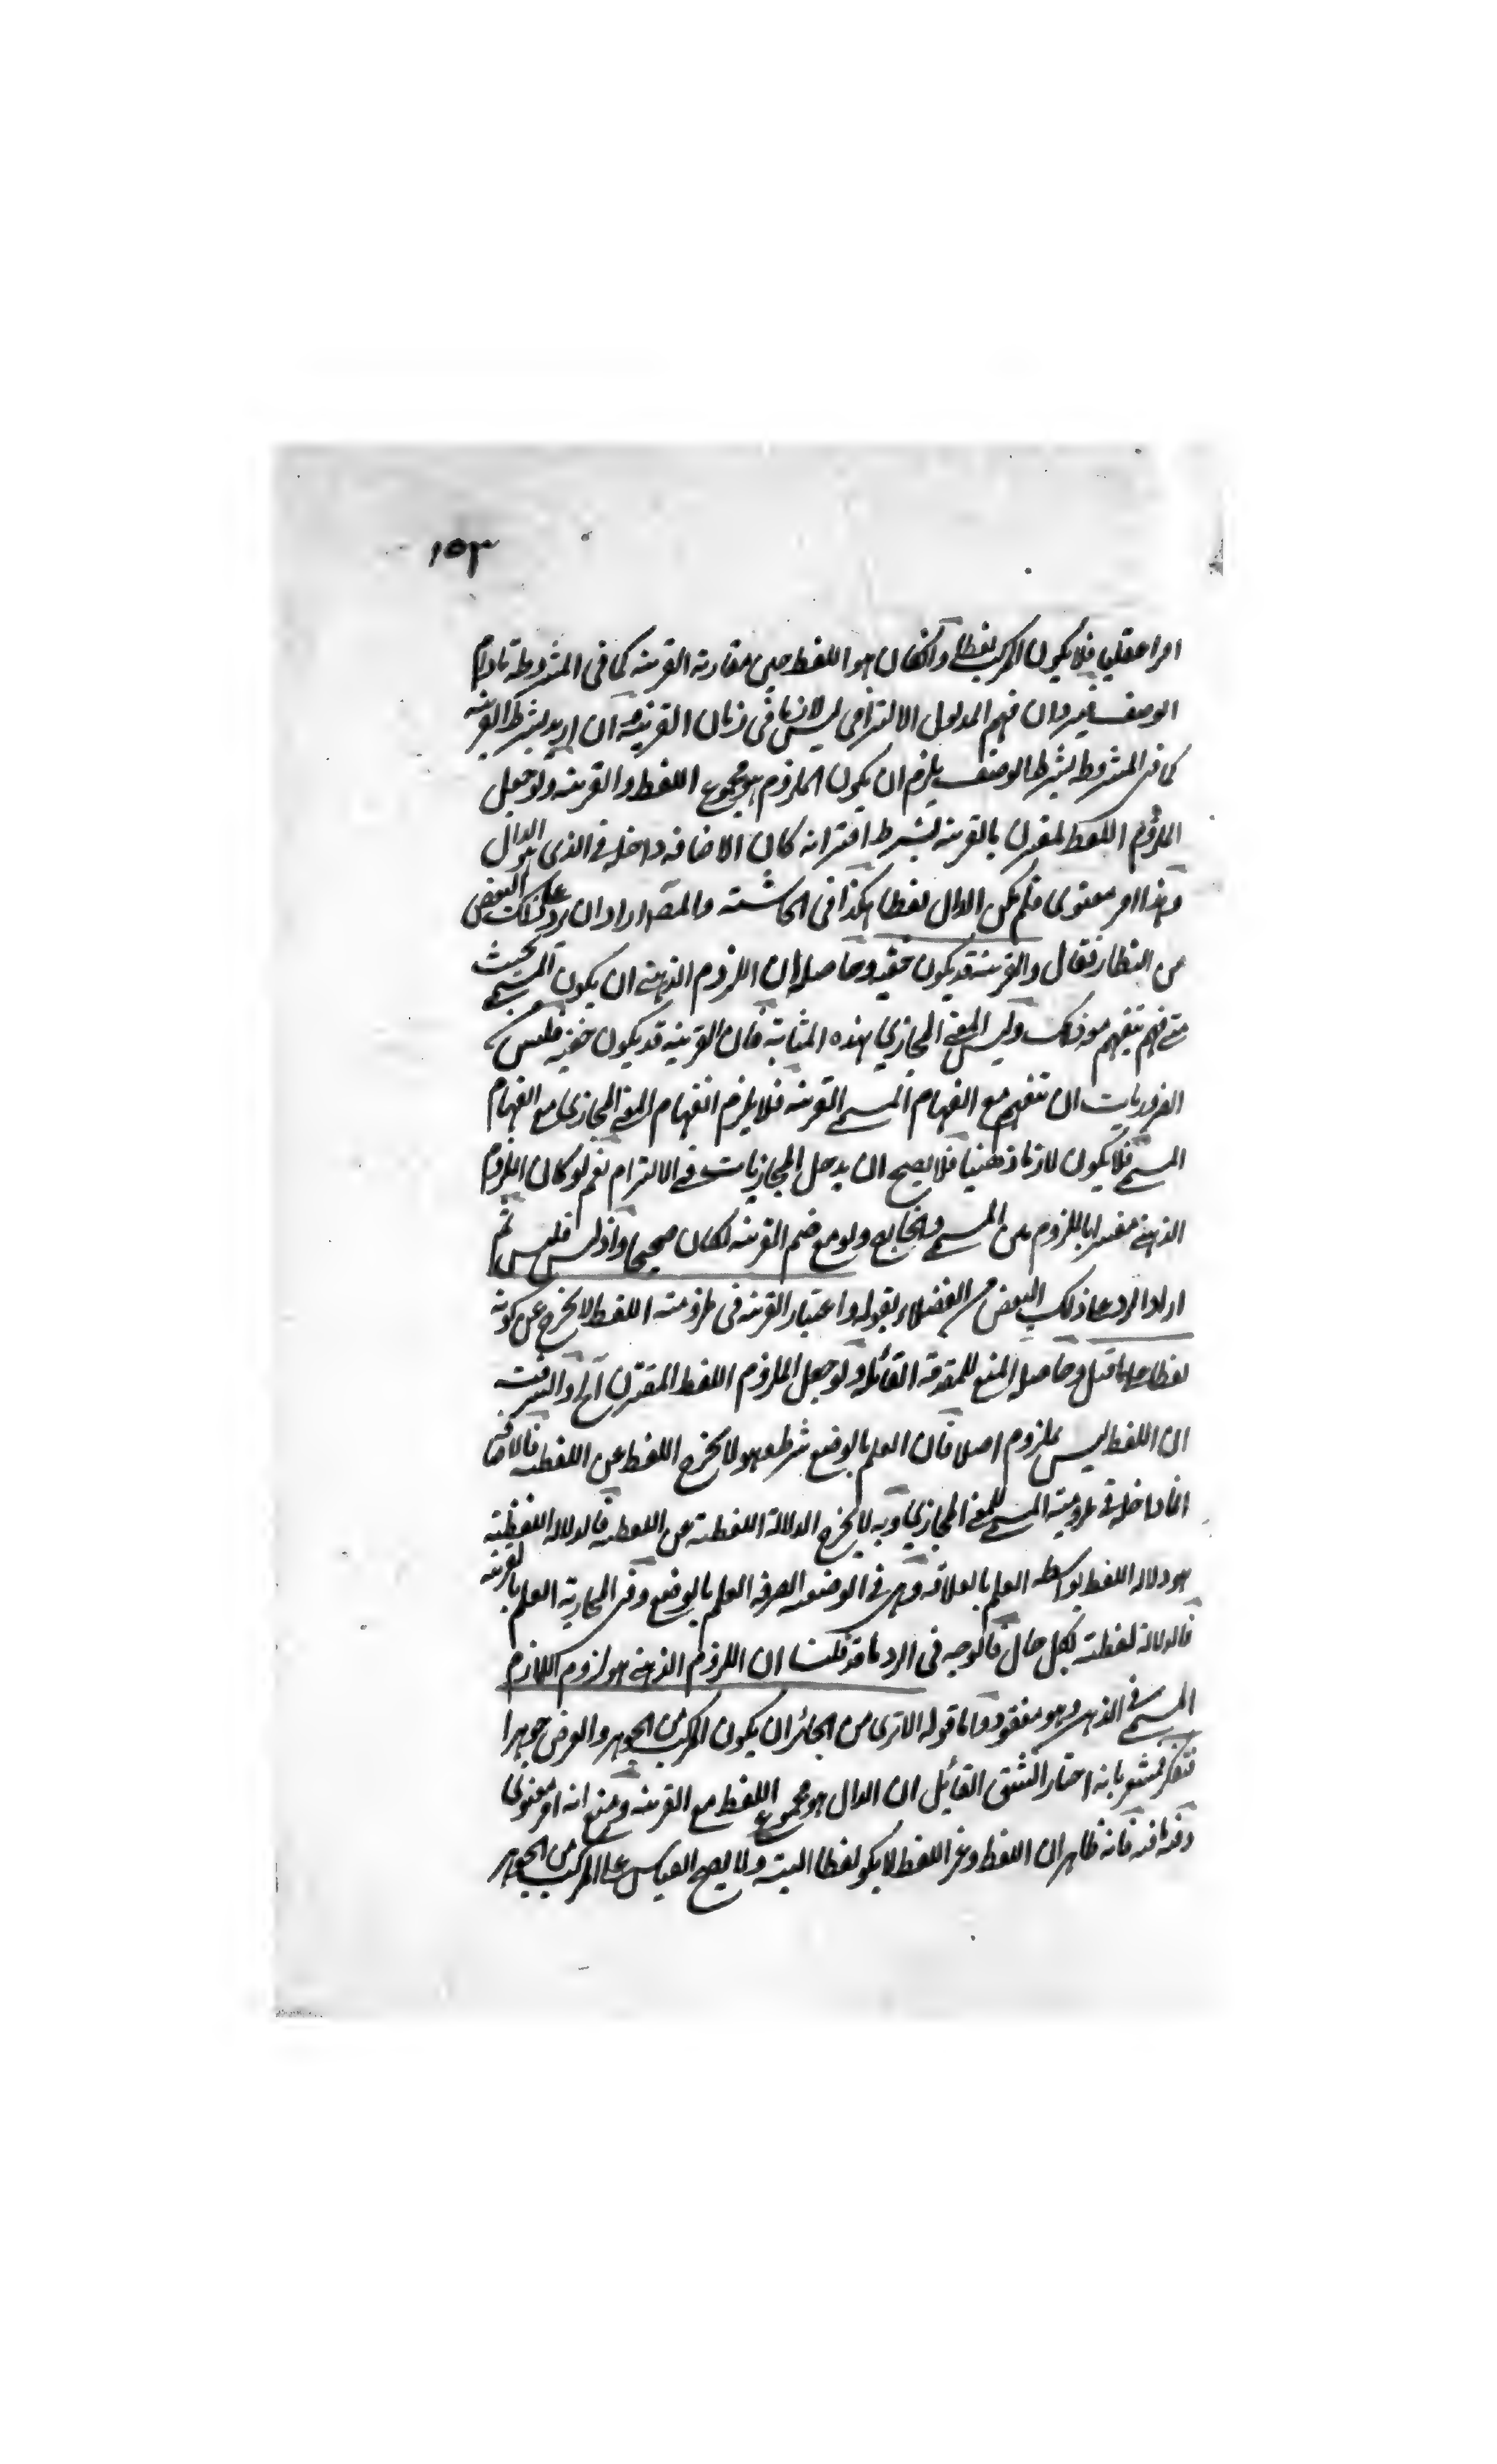 ١٥٣
امرا عقليا فلا يكون المركب لفظا وان كان هو اللفظ حين مقارنة القرينة كما فى المشروطة مادام
الوصف فيرد ان فهم المدلول الالتزامى ليس لازما فى زمان القرينة وان اريد بشرط القرينة
كما فى المشروطة بشرط الوصف يلزم ان يكون الملزوم هو مجموع اللفظ والقرينة ولو جعل
الملزوم اللفظ المقرن بالقرينة بشرط اقترانه كان الاضافة داخلة فى الذى هو الدال
وهذا امر معنوى فلم يكن الدال لفظا هكذا فى الحاشية والمص اراد ان يرد على ذلك البعض
من النظار فقال والقرينة قد يكون خفية وحاصله ان اللزوم الذهنى ان يكون المسمى بحيث
متى فهم يفهم هو ذلك وليس المعنى المجازى بهذه المثابة فان القرينة قد يكون خفية فليس
الضروريات ان تنفهم مع انفهام المسمى القرينة فلا يلزم انفهام المعنى المجازى مع انفهام
المسمى فلا يكون لازما ذهنيا فلا يصح ان يدخل المجازيات فى الالتزام نعم لو كان اللزوم
الذهنى مفسرا باللزوم بين المسمى والخارج ولو مع ضم القرينة لكان صحيحا واذ ليس فليس ثم
اراد الرد على ذلك البعض من الفضلاء بقوله واعتبار القرينة فى ملزومية اللفظ لا يخرج عن كونه
لفظا على ما قيل وحاصله المنع للمقدمة القائلة ولو جعل الملزوم اللفظ المقترن الخ والسر فيه
ان اللفظ ليس بملزوم اصلا فان العلم بالوضع شرط وهو لا يخرج اللفظ عن اللفظية فالاضافة
انما داخلة فى ملزومية المسمى للمعنى المجازى وبه لا يخرج الدلالة اللفظية عن اللفظية فالدلالة اللفظية
هو دلالة اللفظ بواسطة العلم بالعلاقة وهى فى الوضعية الصرفة العلم بالوضع وفى المجازية العلم بالقرينة
فالدلالة لفظية بكل حال فالوجه فى الرد ما قد قلنا ان اللزوم الذهنى هو لزوم اللازم
المسمى فى الذهن وهو مفقود واما قوله الا ترى من الجائز ان يكون المركب من الجوهر والعرض جوهرا
فتفكر فمشعر بانه اختار الشق القائل ان الدال هو مجموع اللفظ مع القرينة ومنع انه امر معنوى
وفيه ما فيه فانه ظاهر ان اللفظ وغير اللفظ لا يكون لفظا البتة ولا يصح القياس على المركب من الجوهر